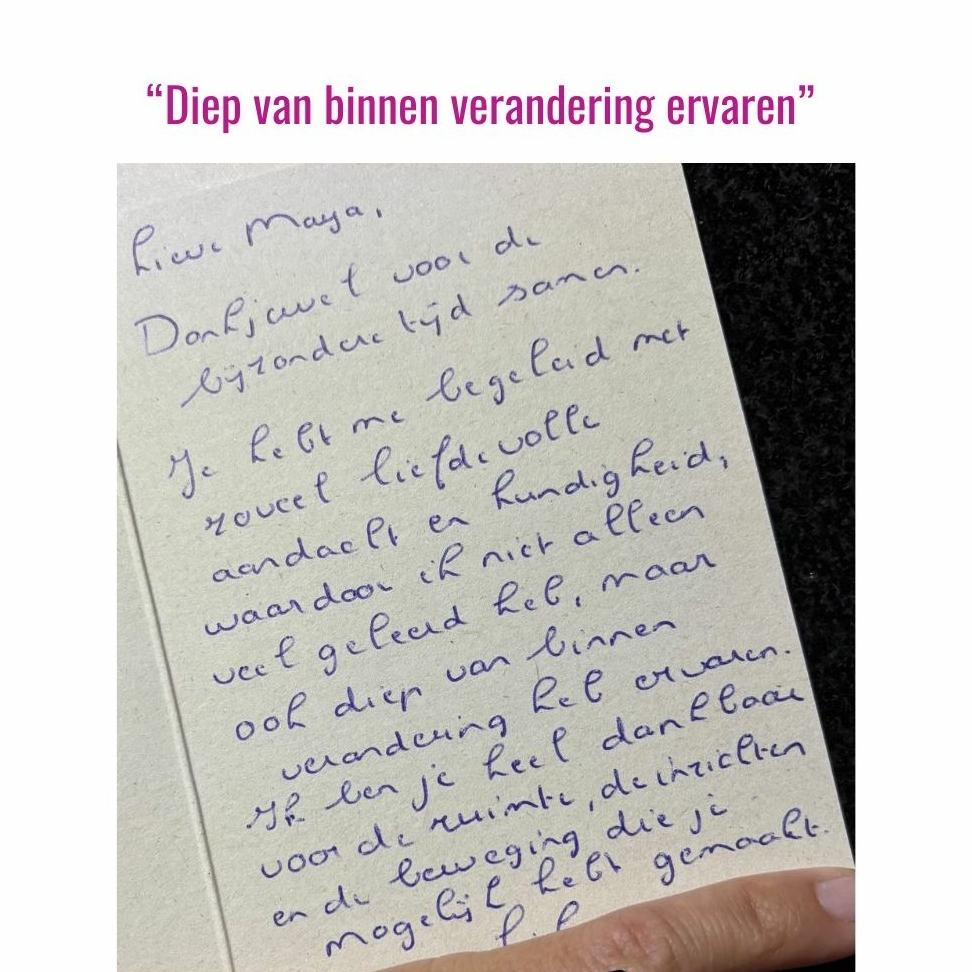 “Diep van binnen verandering ervaren”
Lieve Maya,
Dankjewel voor de
bijzondere tijd samen.
Je hebt me begeleid met
zoveel liefdevolle
aandacht en kundigheid,
waardoor ik niet alleen
veel geleerd heb, maar
ook diep van binnen
verandering heb ervaren.
Ik ben je heel dankbaar
voor de ruimte, de inzichten
en de beweging die je
mogelijk hebt gemaakt.